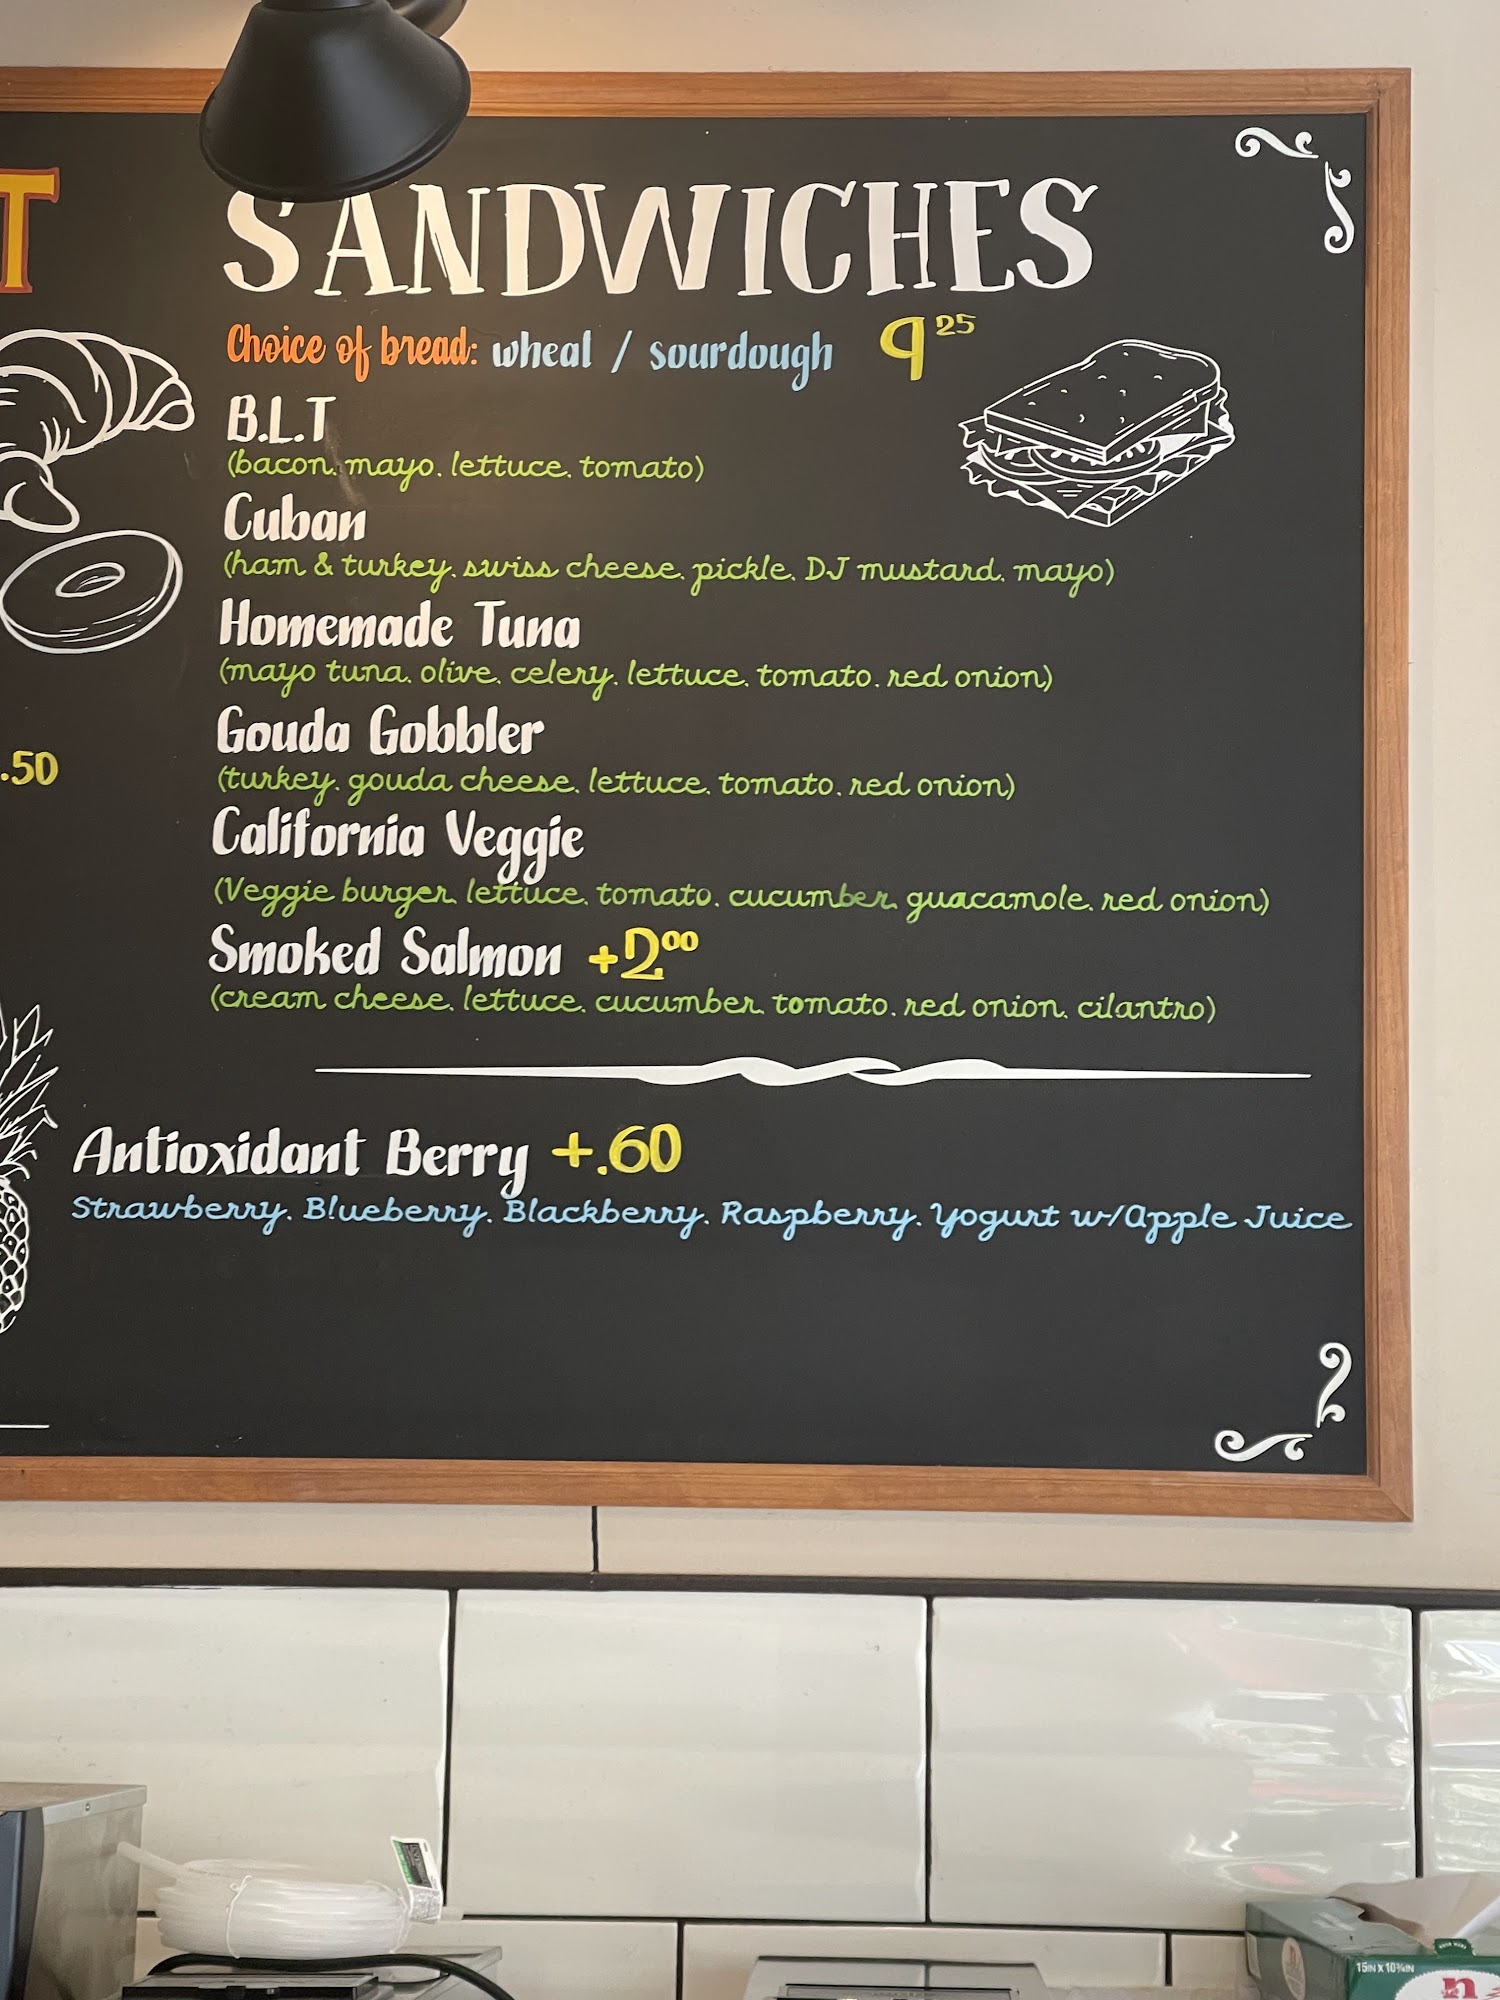 T
SANDWICHES
Choice of bread: wheat / sourdough 9 25
B.L.T
(bacon, mayo, lettuce, tomato)
Cuban
(ham & turkey, swiss cheese, pickle, DJ mustard, mayo)
Homemade Tuna
(mayo tuna, olive, celery, lettuce, tomato, red onion)
Gouda Gobbler
(turkey, gouda cheese, lettuce, tomato, red onion)
.50
California Veggie
(Veggie burger, lettuce, tomato, cucumber, guacamole, red onion)
Smoked Salmon +2 00
(cream cheese, lettuce, cucumber, tomato, red onion, cilantro)
Antioxidant Berry +.60
Strawberry, Blueberry, Blackberry, Raspberry, Yogurt w/Apple Juice
15IN X 10¾IN
n